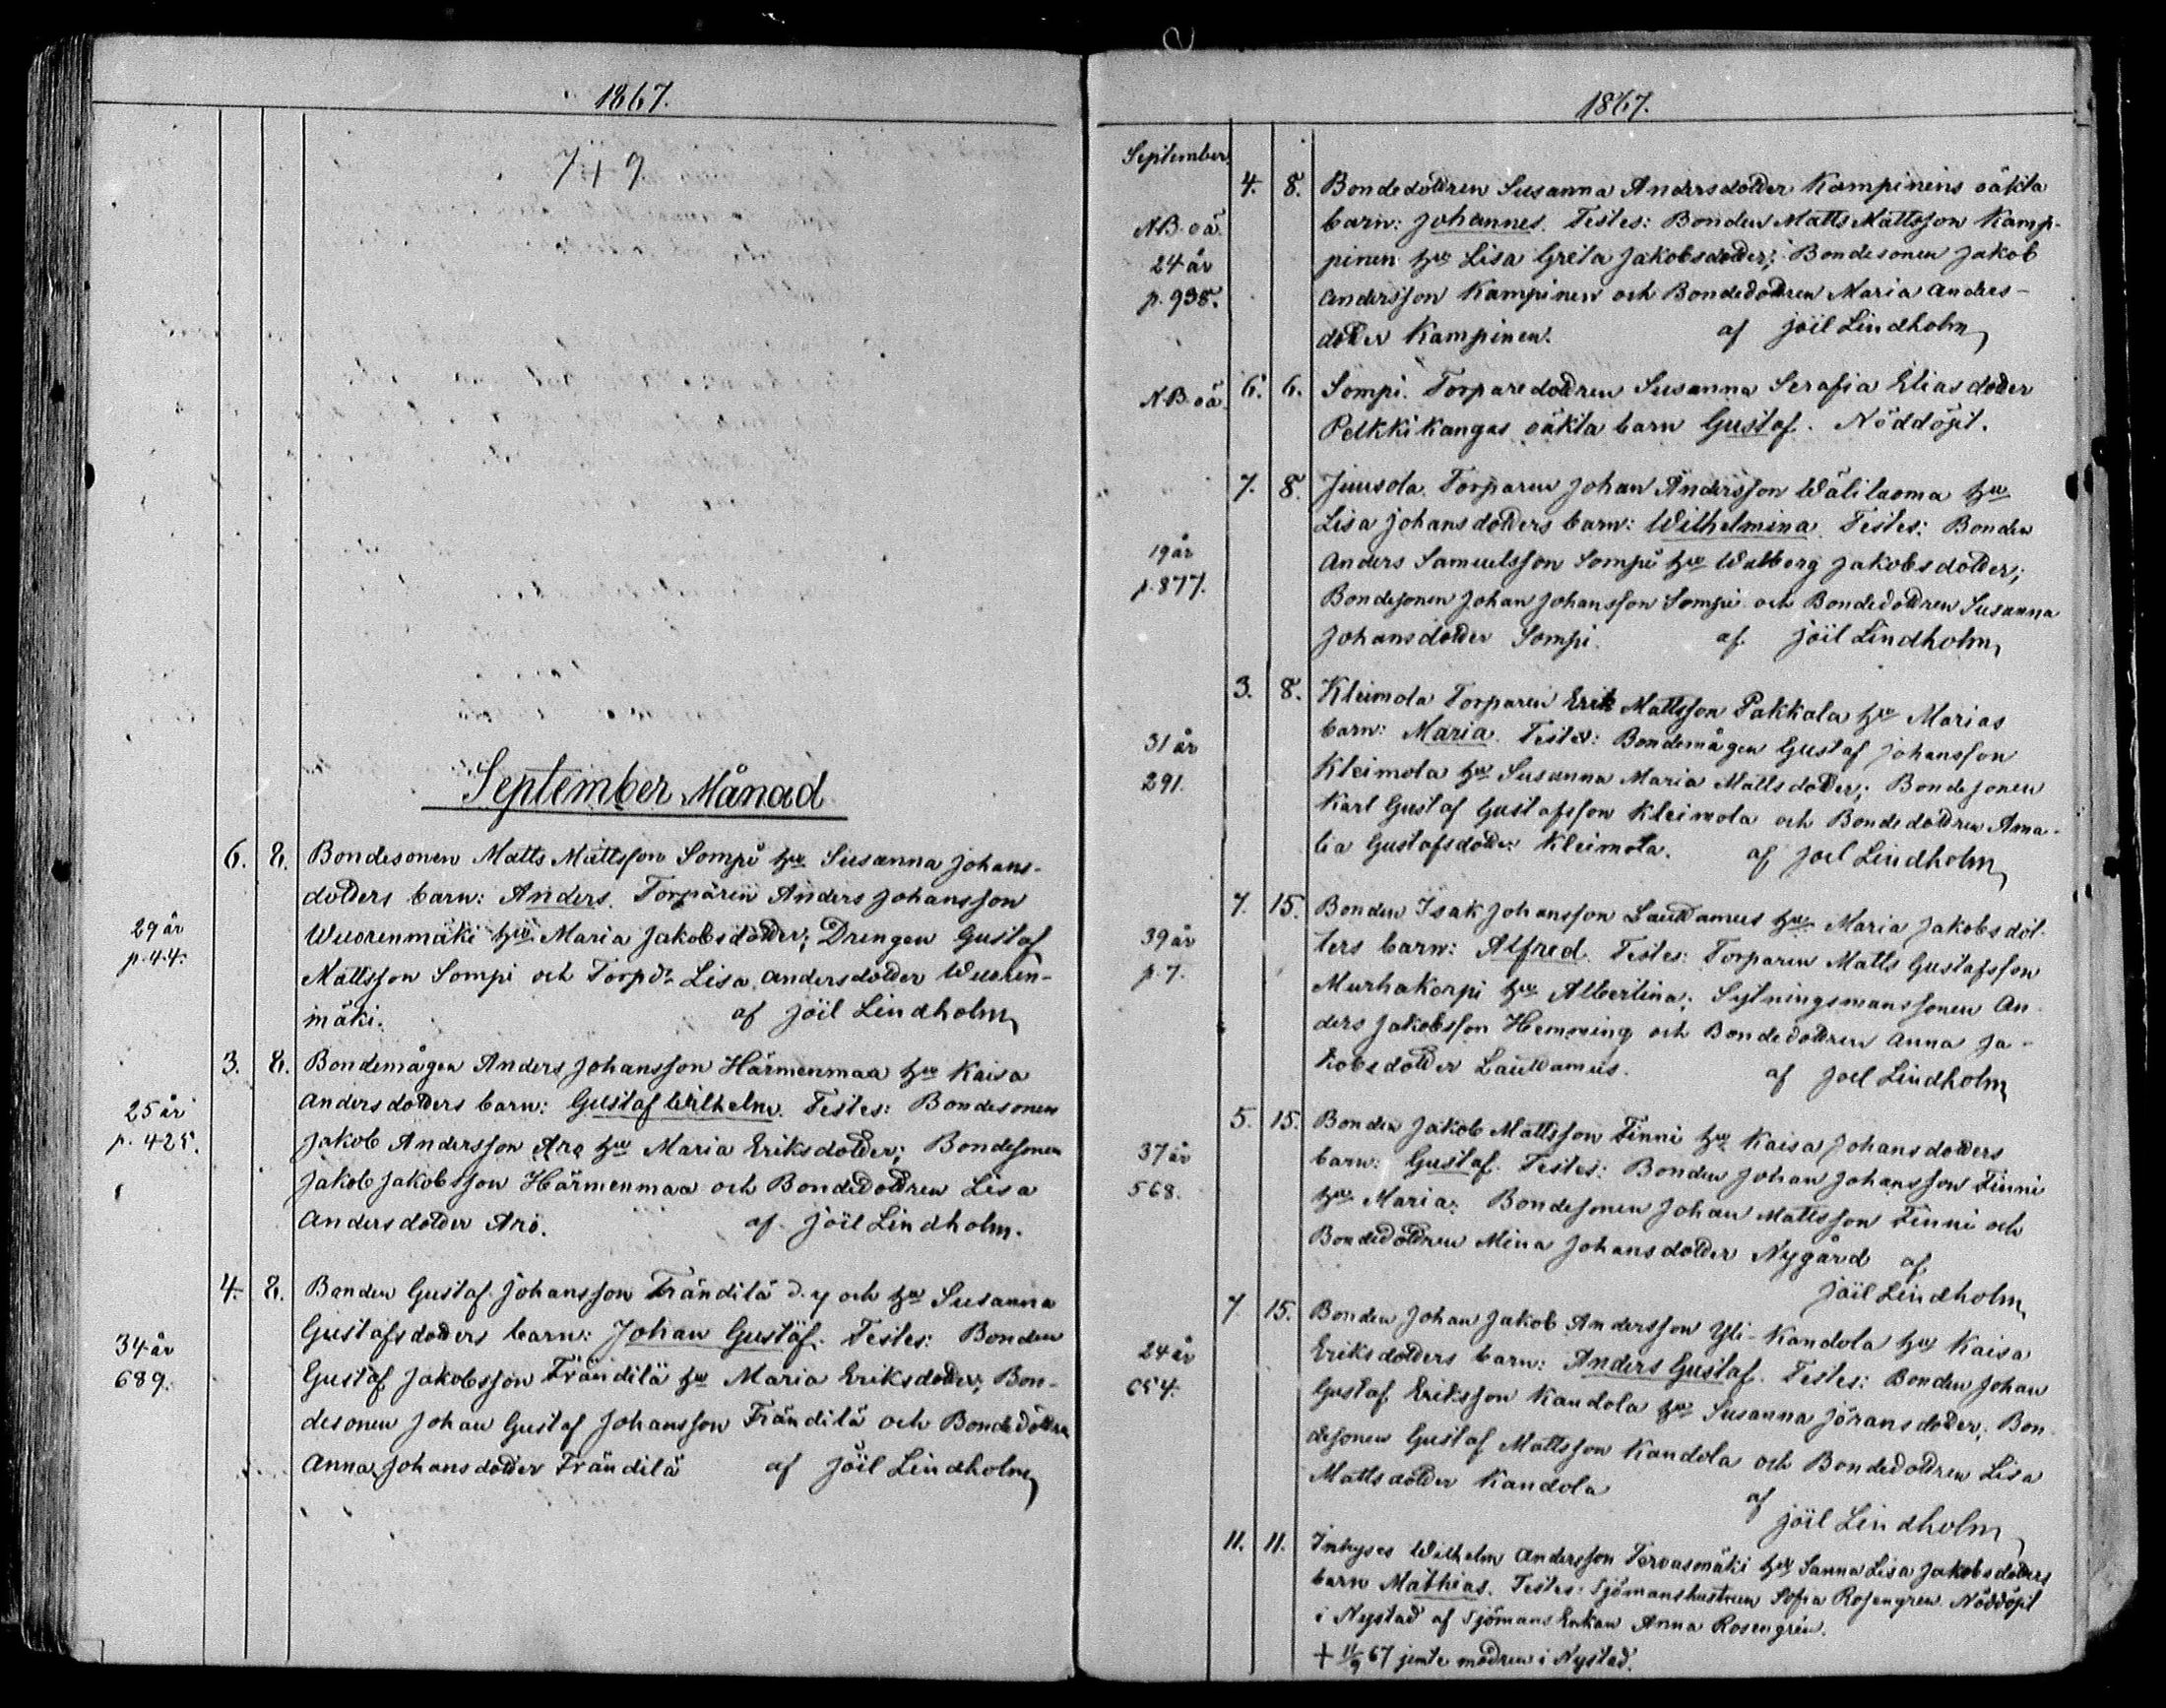 1867.
749
September Månad
6. 8. Bondesonen Matts Mattsson Sompi hu Susanna Johans-
dotters barn: Anders. Torparen Anders Johansson
29 år Wuorenmäki hu Maria Jakobsdotter; Drengen Gustaf
p. 44. Mattsson Sompi och Torpdr Lisa Andersdotter Wuoren-
mäki. af Joël Lindholm
3. 8. Bondemågen Anders Johansson Härmenmaa hu Kaisa
Andersdotters barn: Gustaf Wilhelm. Testes: Bondesonen
25 år Jakob Andersson Aro hu Maria Eriksdotter; Bondesonen
p. 425. Jakob Jakobsson Härmenmaa och Bondedottren Lisa
Andersdotter Aro. af Joël Lindholm.
4. 8. Bonden Gustaf Johansson Fränditä d. y och hu Susanna
Gustafsdotters barn: Johan Gustaf. Testes: Bonden
34 år Gustaf Jakobsson Fränditä hu Maria Eriksdotter; Bon-
689. desonen Johan Gustaf Johansson Fränditä och Bondedottren
Anna Johansdotter Fränditä af Joël Lindholm
1867.
September
4. 8. Bondedottren Susanna Andersdotter Kampinens oäkta
NB. oä. barn: Johannes. Testes: Bonden Matts Mattsson Kamp-
24 år pinen hu Lisa Greta Jakobsdotter; Bondesonen Jakob
p. 938. Andersson Kampinen och Bondedottren Maria Anders-
dotter Kampinen. af Joël Lindholm
NB. oä. 6. 6. Sompi. Torparedottren Susanna Serafia Eliasdotter
Petkkikangas oäkta barn Gustaf. Nöddöpt.
7. 8. Juusola. Torparen Johan Andersson Wälilaoma hu
Lisa Johansdotters barn: Wilhelmina. Testes: Bonden
19 år Anders Samuelsson Sompi hu Walborg Jakobsdotter;
p. 877. Bondesonen Johan Johansson Sompi och Bondedottren Susanna
Johansdotter Sompi. af Joël Lindholm
3. 8. Kleimola Torparen Erik Mattsson Pakkala hu Marias
31 år barn: Maria. Testes: Bondemågen Gustaf Johansson
291. Kleimola hu Susanna Maria Mattsdotter; Bondesonen
Karl Gustaf Gustafsson Kleimola och Bondedottren Ama-
lia Gustafsdotter Kleimola. af Joel Lindholm
7. 15. Bonden Isak Johansson Lauttamus hu Maria Jakobsdot-
39 år ters barn: Alfred. Testes: Torparen Matts Gustafsson
p. 7. Murhakorpi hu Albertina; Sytningsmanssonen An-
ders Jakobsson Hemming och Bondedottren Anna Ja-
kobsdotter Lauttamus. af Joel Lindholm
5. 15. Bonden Jakob Mattsson Finni hu Kaisa Johansdotters
37 år barn: Gustaf. Testes: Bonden Johan Johansson Finni
568. hu Maria; Bondesonen Johan Mattsson Finni och
Bondedottren Mina Johansdotter Nygård af
Joël Lindholm
7. 15. Bonden Johan Jakob Andersson Yli-Kandola hu Kaisa
24 år Eriksdotters barn: Anders Gustaf. Testes: Bonden Johan
654. Gustaf Eriksson Kandola hu Susanna Jöransdotter; Bon-
desonen Gustaf Mattsson Kandola och Bondedottren Lisa
Mattsdotter Kandola af
Joël Lindholm
11. 11. Inhyses Wilhelm Andersson Tervasmäki hu Sanna Lisa Jakobsdotters
barn Mathias. Testes: Sjömanshustrun Sofia Rosengren. Nöddöpt
i Nystad af Sjömans Enkan Anna Rosengrén.
+ 11/9 67 jemte modren i Nystad.